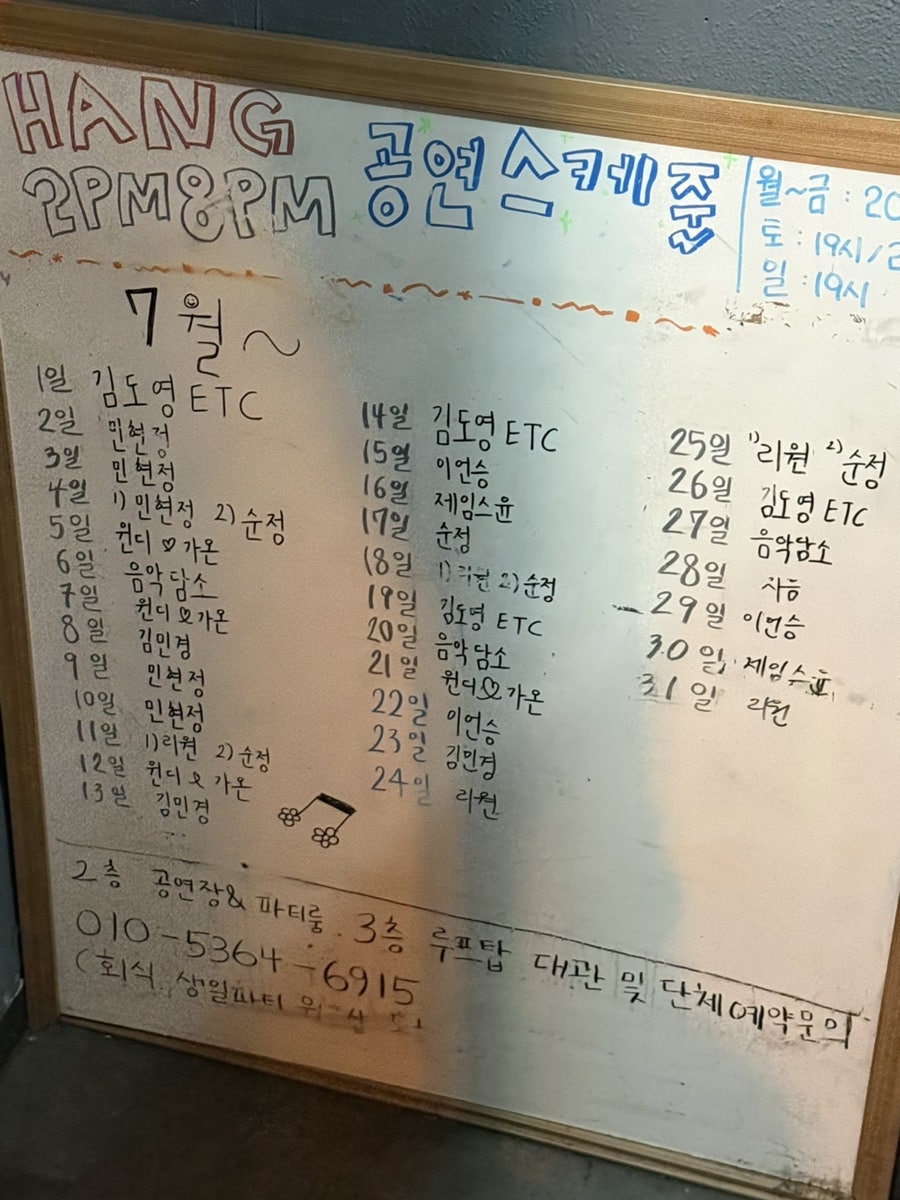 HANG
2PM8PM
공연스케줄
월~금 : 20
토 : 19시/2
일 : 19시
7월~
1일 김도영 ETC
2일 민현정
3일 민현정
4일 1) 민현정 2) 순정
5일 윈디♡가온
6일 음악담소
7일 윈디♡가온
8일 김민경
9일 민현정
10일 민현정
11일 1)리원 2)순정
12일 윈디 가온
13일 김민경
14일 김도영 ETC
15일 이언승
16일 제임스윤
17일 순정
18일 1)리원 2)순정
19일 김도영 ETC
20일 음악담소
21일 윈디♡가온
22일 이언승
23일 김민경
24일 리원
25일 1)리원 2)순정
26일 김도영 ETC
27일 음악담소
28일
29일 이언승
30일 제임스윤
31일 리원
2층 공연장& 파티룸. 3층 루프탑 대관 및 단체예약문의
010-5364-6915
(회식 생일파티